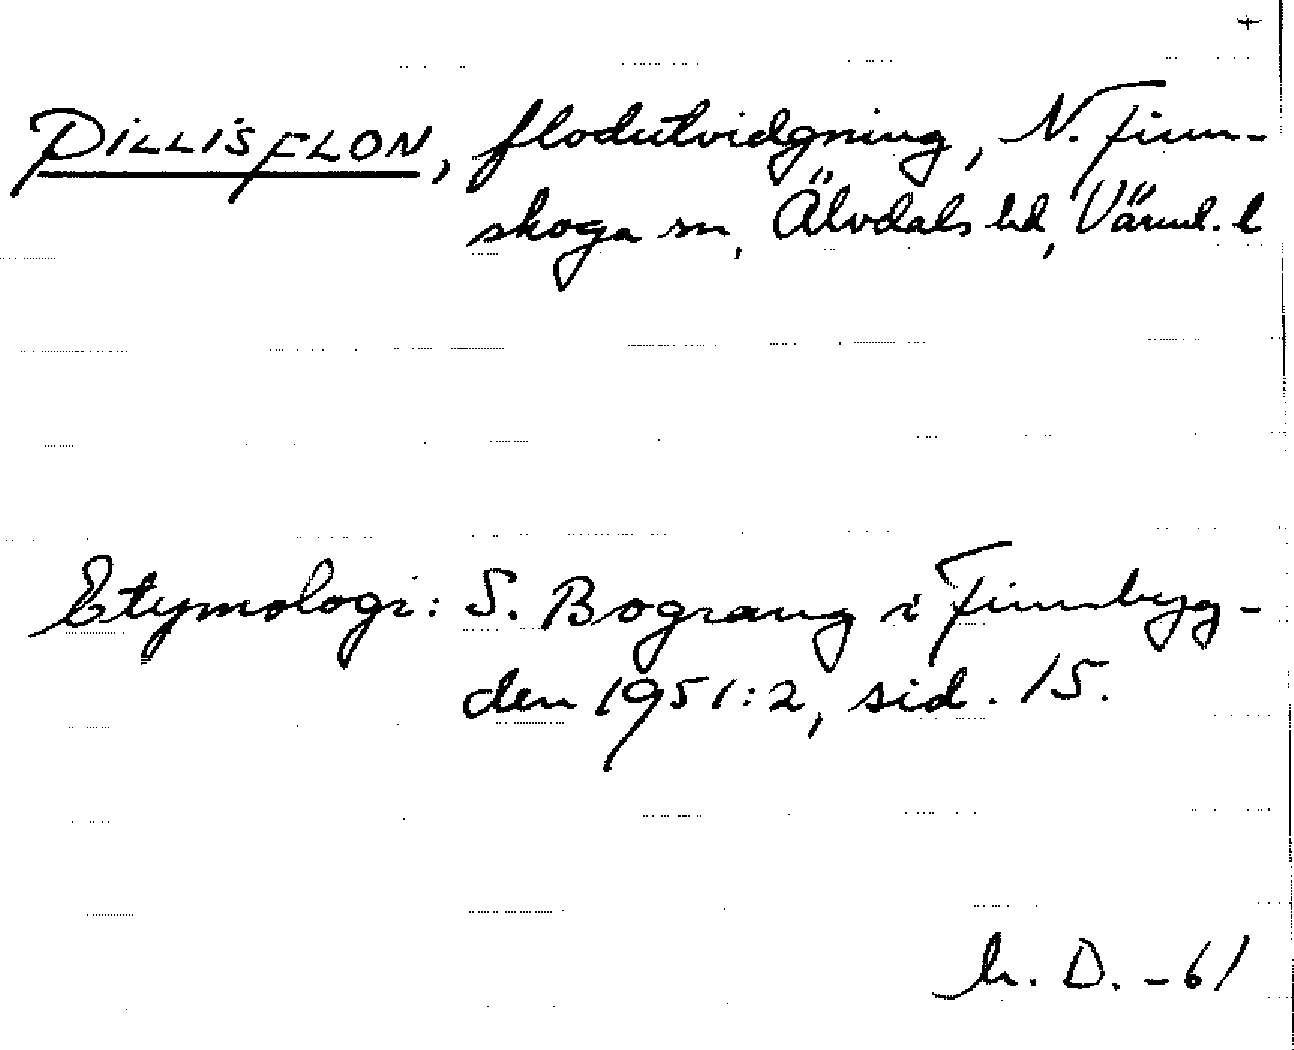 +
PILLISFLON, flodutvidgning, N. Finn-
skoga sn, Älvdals hd, Värml. l
Etymologi: S. Bograng i Finnbyg-
den 1951:2, sid. 15.
h. D. -61